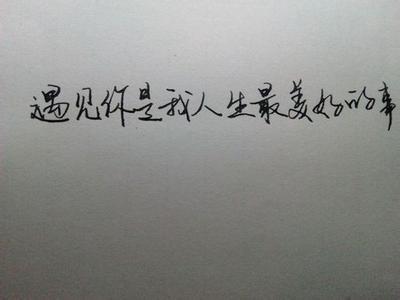 遇见你是我人生最美好的事